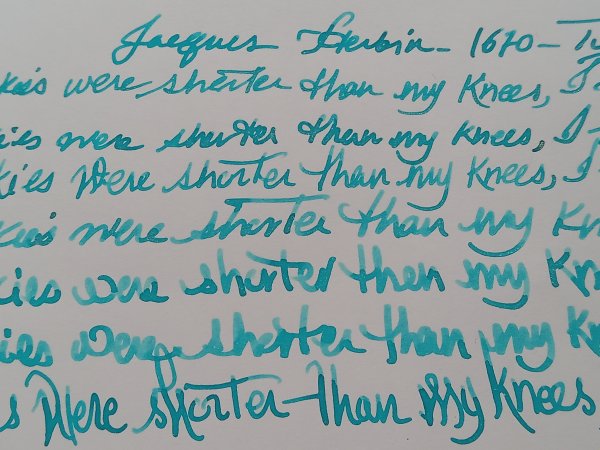 Jacques Herbin - 1670 - Tu
kies were shorter than my Knees, I
kies were shorter than my Knees, I -
kies Were shorter than my Knees, I
kies were shorter than my Kn
kies were shorter then my Kn
ies were shorter than my Kn
s Were shorter than My Knees